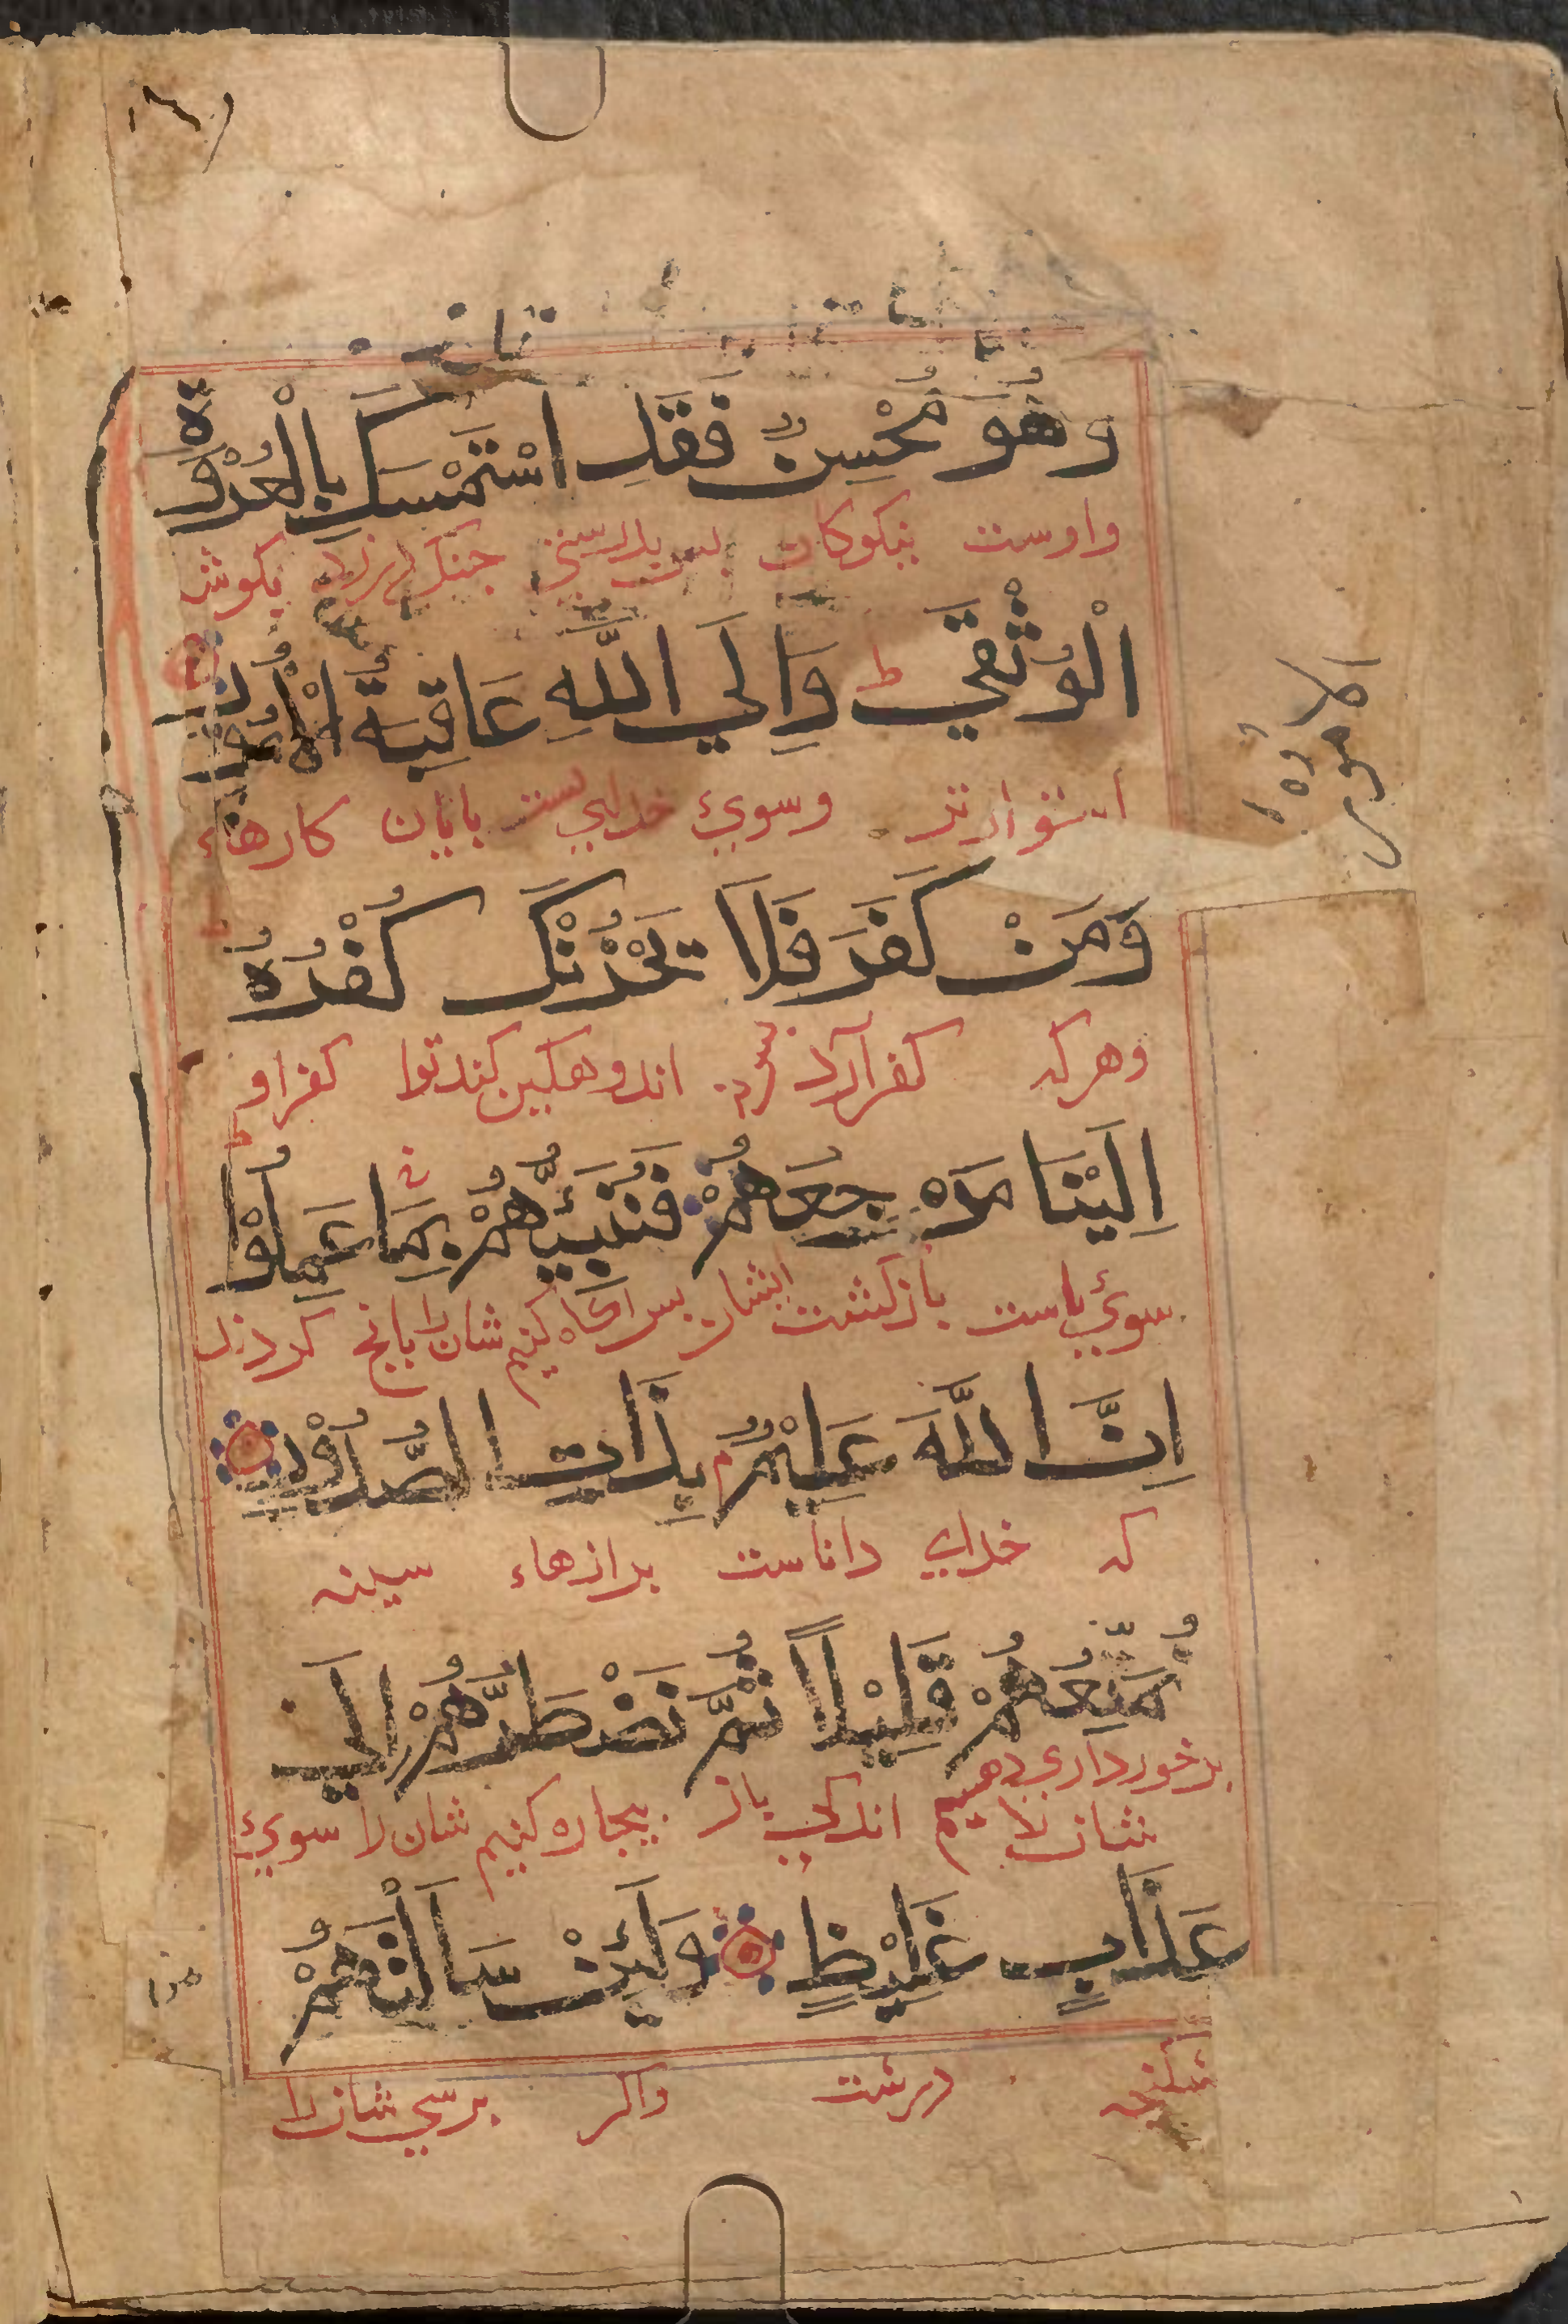 وَهُوَ مُحْسِنٌ فَقَدِ اسْتَمْسَكَ بِالْعُرْوَةِ
واوست نیکوکار پس بدرستی چنک درزد بکوشه
الْوُثْقٰي ط وَاِلَي اللّٰهِ عَاقِبَةُ الْاُمُوْرِ
استوارتر وسوئ خدایست پایان کارهاء
الامور
وَمَنْ كَفَرَ فَلَا يَحْزُنْكَ كُفْرُهٗ
وهرکه کفر آرد اندوهکین کندترا کفر او
اِلَيْنَا مَرْجِعُهُمْ فَنُنَبِّئُهُمْ بِمَا عَمِلُوْا
سوئ ماست بازکشت ایشان پس آکاه کنیم شان را بانچ کردند
اِنَّ اللّٰهَ عَلِيْمٌ بِذَاتِ الصُّدُوْرِ
که خدای داناست برازهاء سینه
نُمَتِّعُهُمْ قَلِيْلًا ثُمَّ نَضْطَرُّهُمْ اِلَي
برخورداری دهیم
شان را اندکی باز بیچاره کنیم شان را سوئ
عَذَابٍ غَلِيْظٍ وَلَئِنْ سَاَلْتَهُمْ
شکنجه درشت واکر پرسی شان را